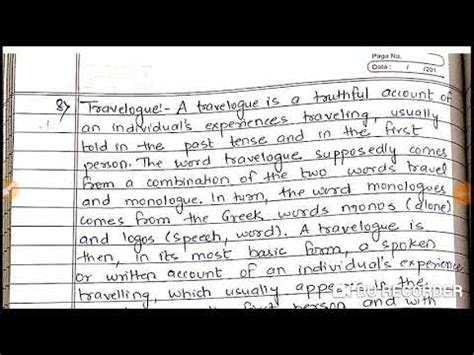 Page No.
Date : / /201
8) Travelogue:- A travelogue is a truthful account of
an individual's experiences traveling, usually
told in the past tense and in the first
person. The word travelogue supposedly comes
from a combination of the two words travel
and monologue. In turn, the word monologues
comes from the Greek words monos (alone)
and logos (speech, word). A travelogue is
then, in its most basic form, a spoken
or written account of an individual's experience
travelling, which usually appears in the
first person and with
DU RECORDER